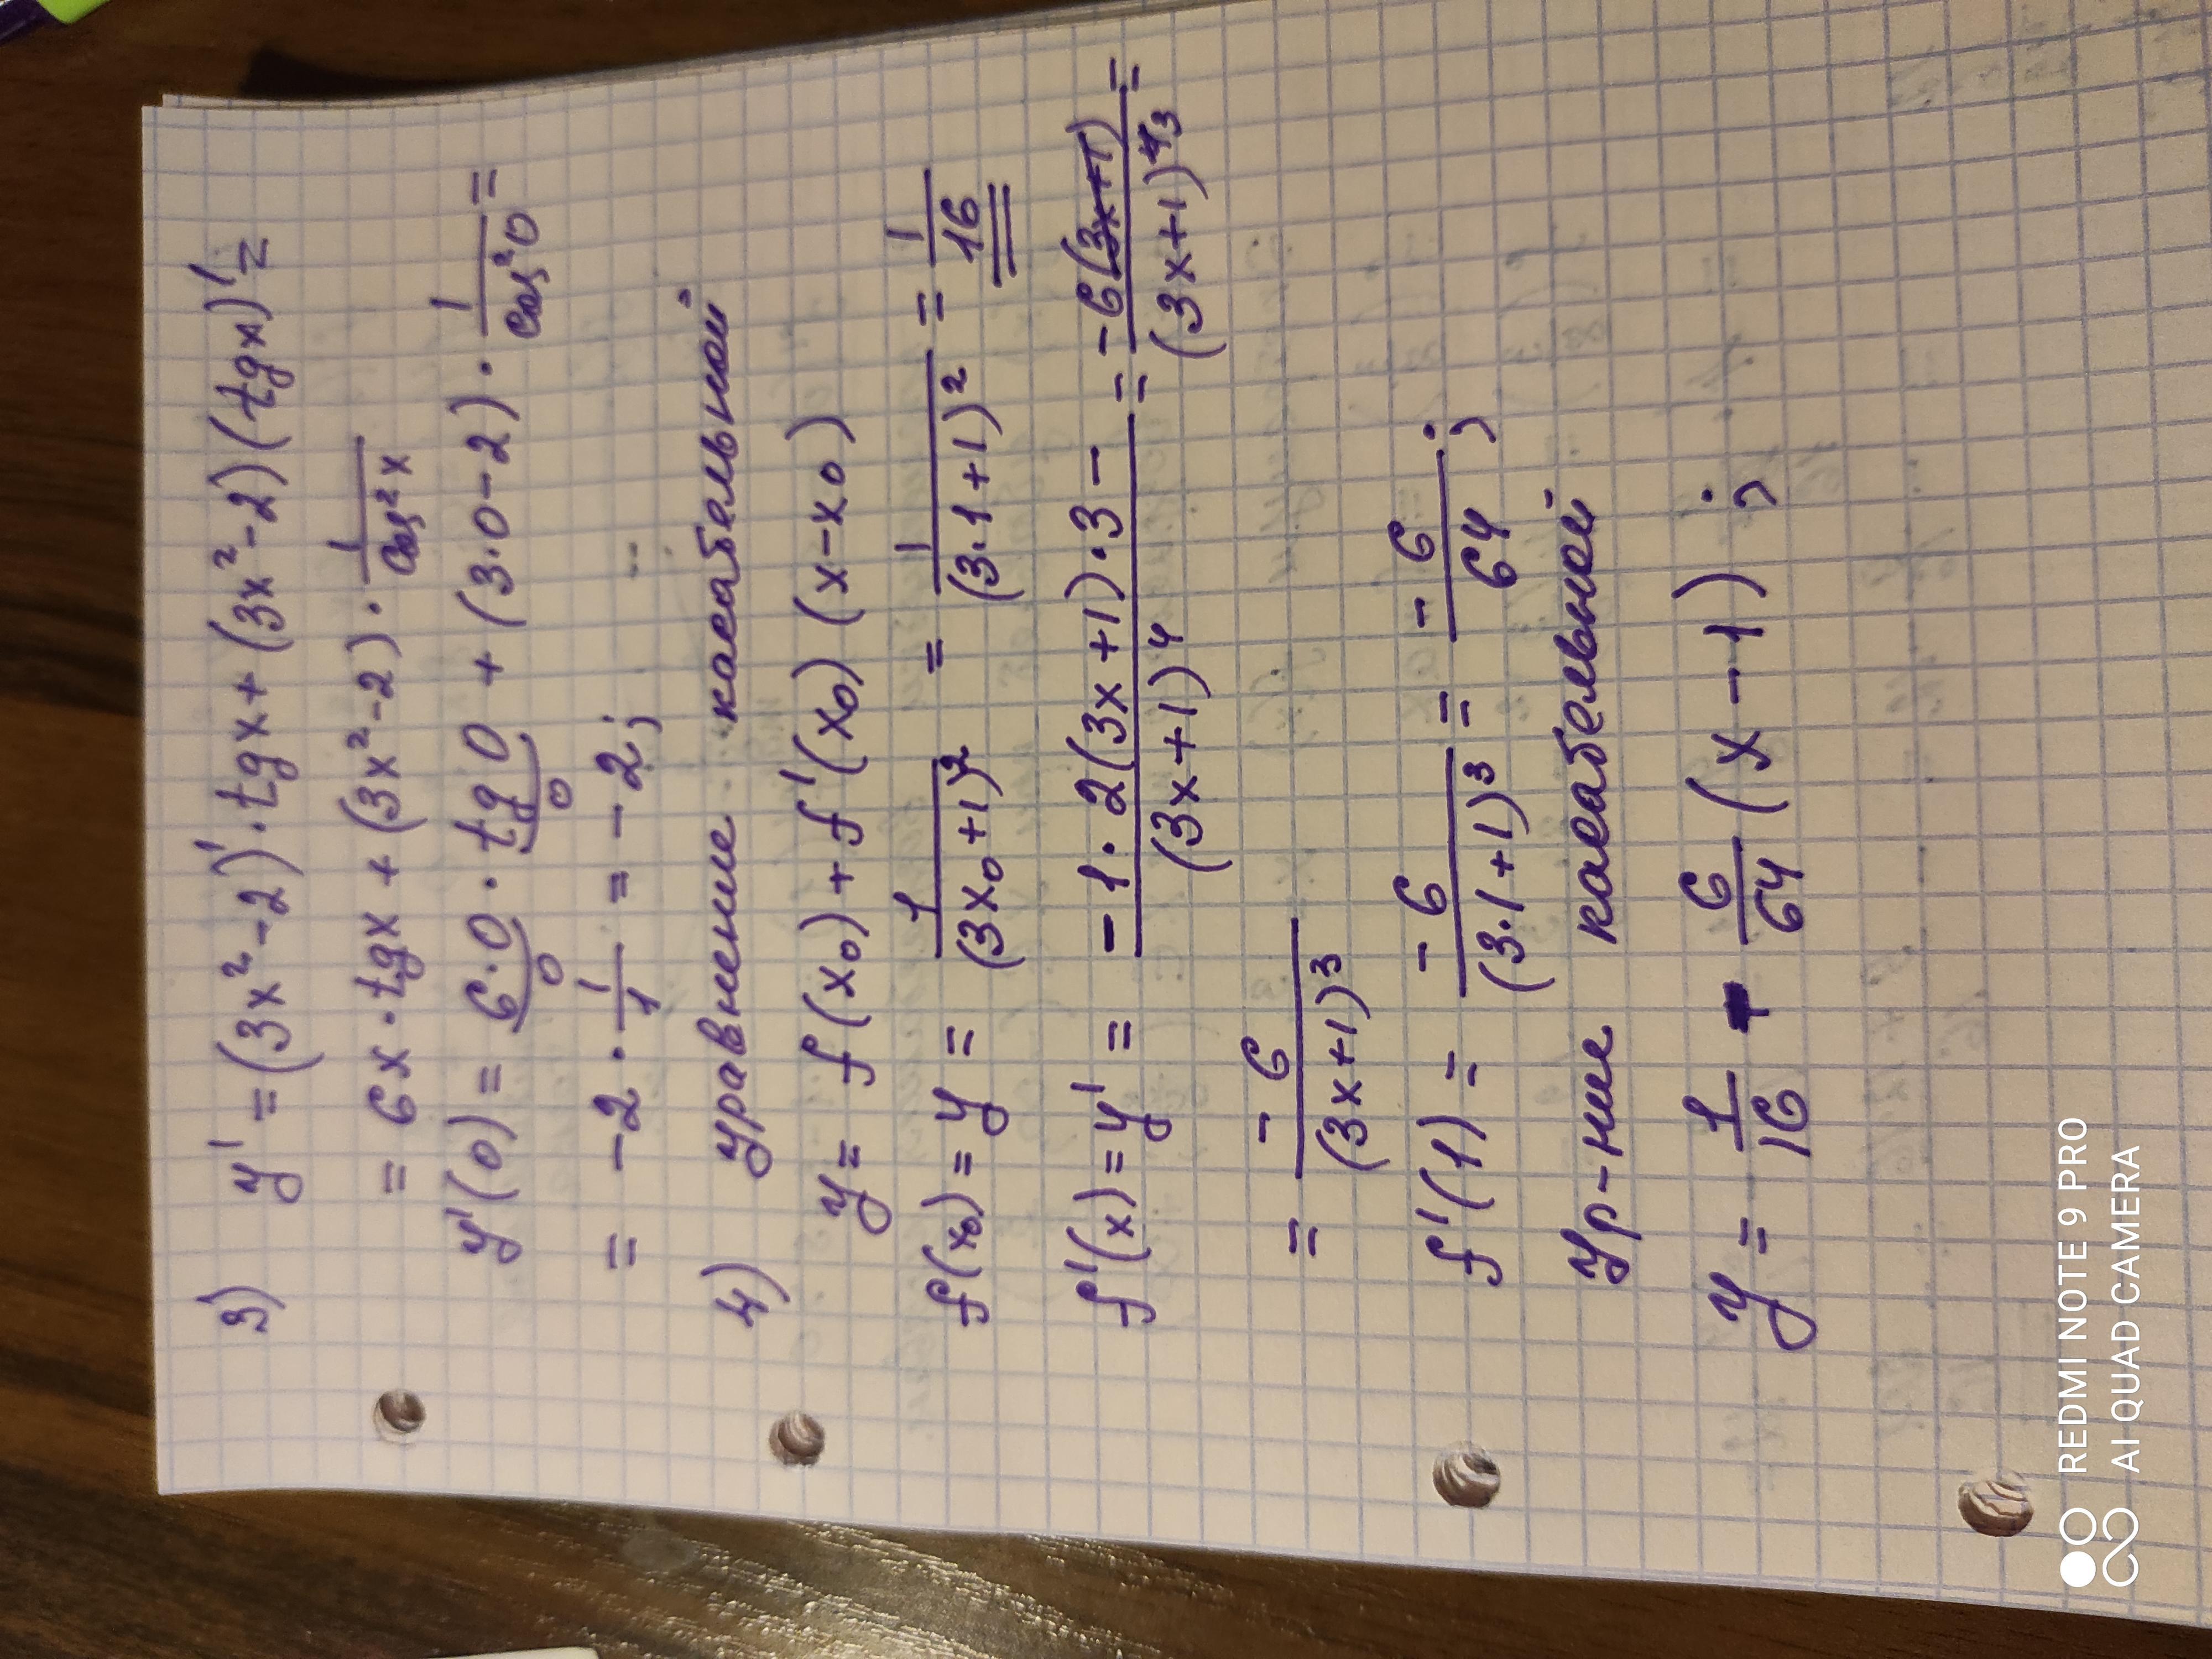 3) y' = (3x² - 2)' · tgx + (3x² - 2)(tgx)' =
= 6x · tgx + (3x² - 2) · 1/cos²x
y'(0) = 6·0 · tg0 + (3·0 - 2) · 1/cos²0 =
0 0
= -2 · 1/1 = -2;
4) уравнение касательной
y = f(x₀) + f'(x₀)(x - x₀)
f(x₀) = y = 1/(3x₀+1)² = 1/(3·1+1)² = 1/16
f'(x) = y' = -1·2(3x+1)·3-/(3x+1)⁴ = -6(3x+1)/(3x+1)³ =
= -6/(3x+1)³
f'(1) = -6/(3·1+1)³ = -6/64;
Ур-ние касательной
y = 1/16 - 6/64 (x - 1);
REDMI NOTE 9 PRO
AI QUAD CAMERA